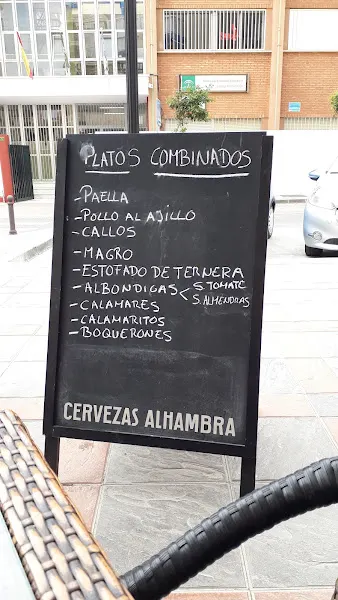 PLATOS COMBINADOS
- PAELLA
- POLLO AL AJILLO
- CALLOS
- MAGRO
- ESTOFADO DE TERNERA
- ALBONDIGAS < S. TOMATE
S. ALMENDRAS
- CALAMARES
- CALAMARITOS
- BOQUERONES
CERVEZAS ALHAMBRA